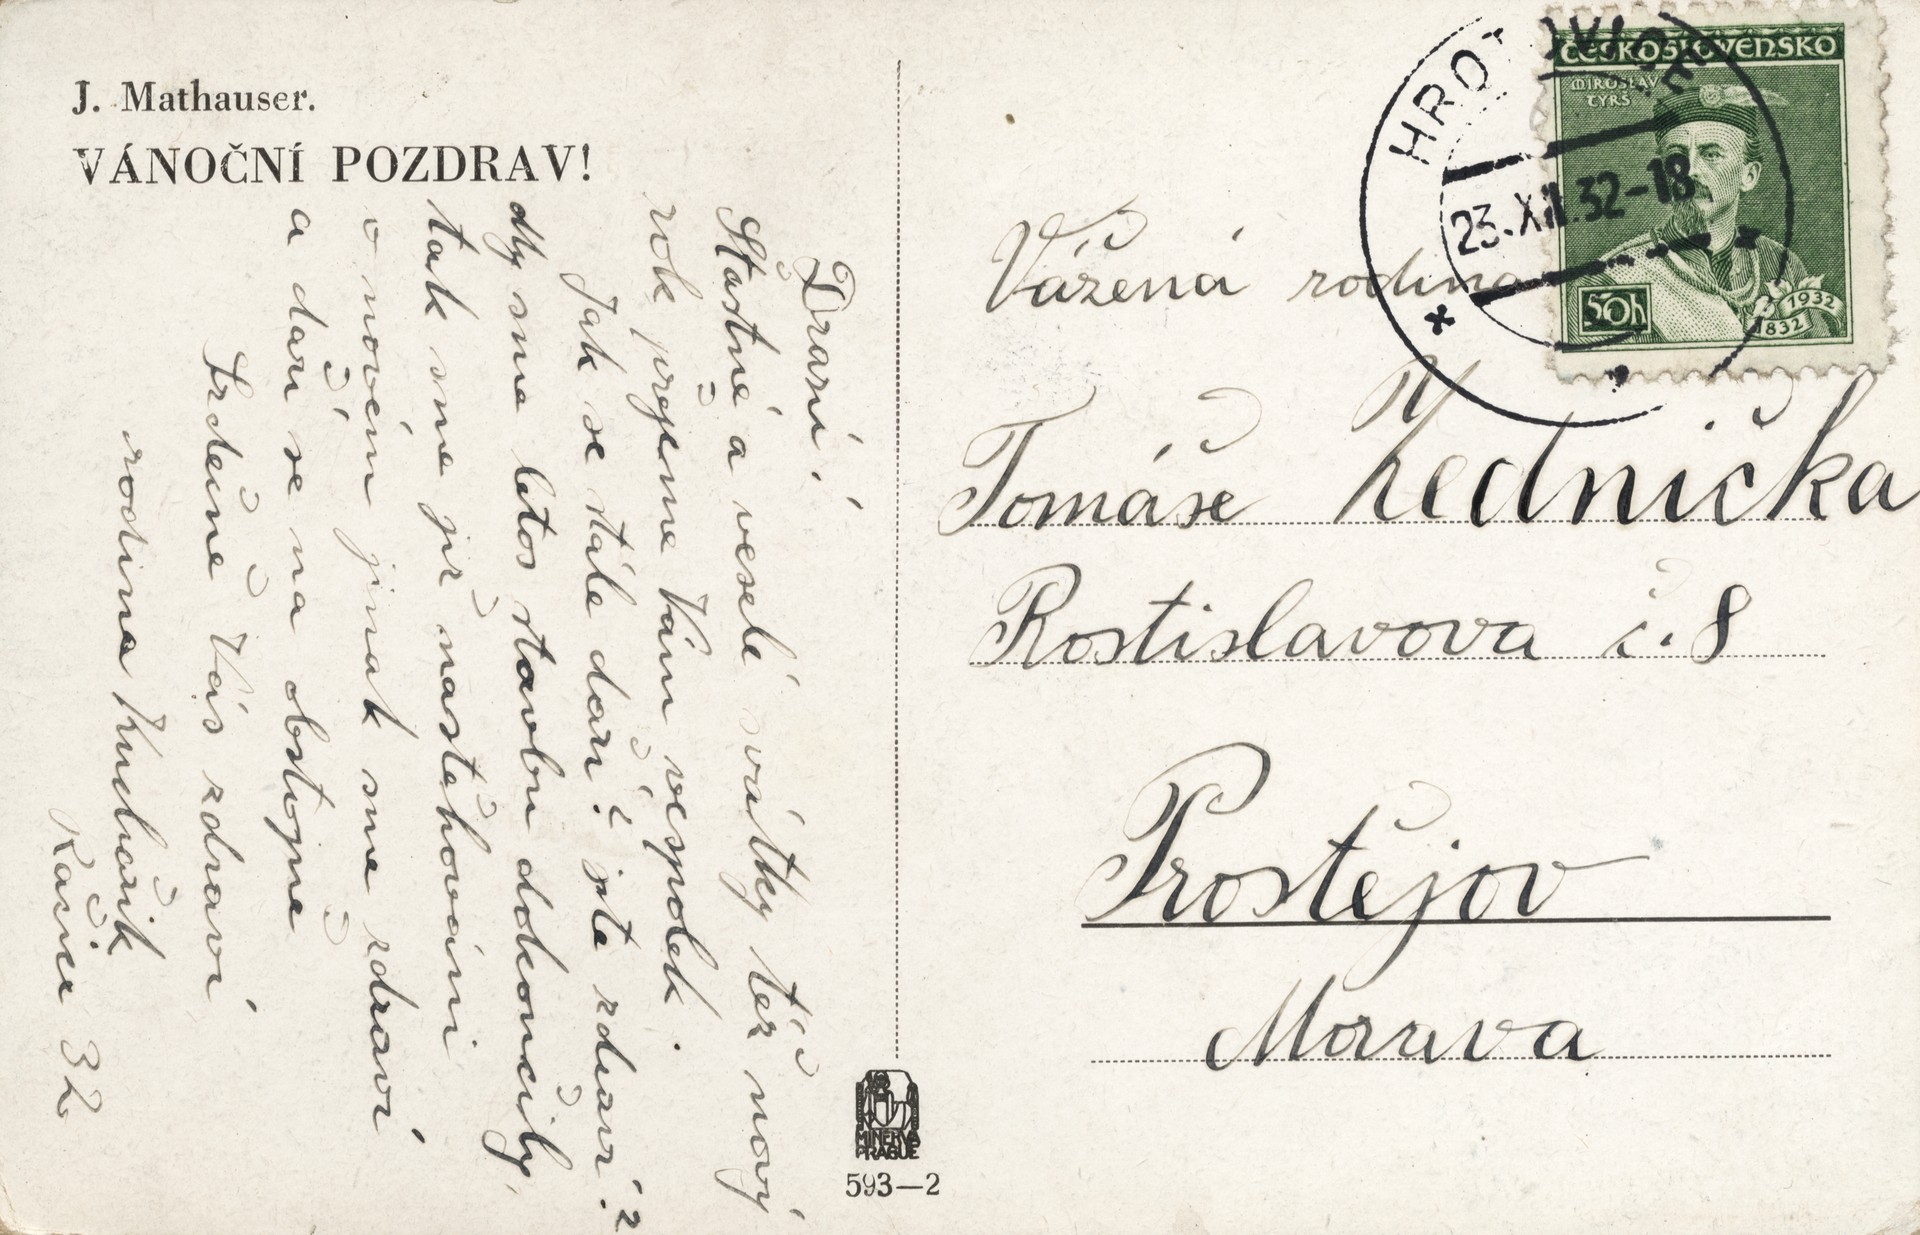 J. Mathauser.
VÁNOČNÍ POZDRAV!
Drazí!
Štastné a veselé svátky též nový
rok přejeme Vám vespolek.
Jak se stále daří? jste zdraví?
dly sme letos stavbu dokončily,
tak sme již nastěhováni
v novém jinak sme zdraví
a daří se na obstojně
Srdečně Vás zdraví
rodina Kuchařík
Račice 32
MINERVA
PRAGUE
593—2
HROTOVICE
23.XII.32-18
ČESKOSLOVENSKO
MIROSLAV
TYRŠ
50h
1832
1932
Vážená rodina
Tomáše Lednička
Rostislavova č. 8
Prostějov
Morava